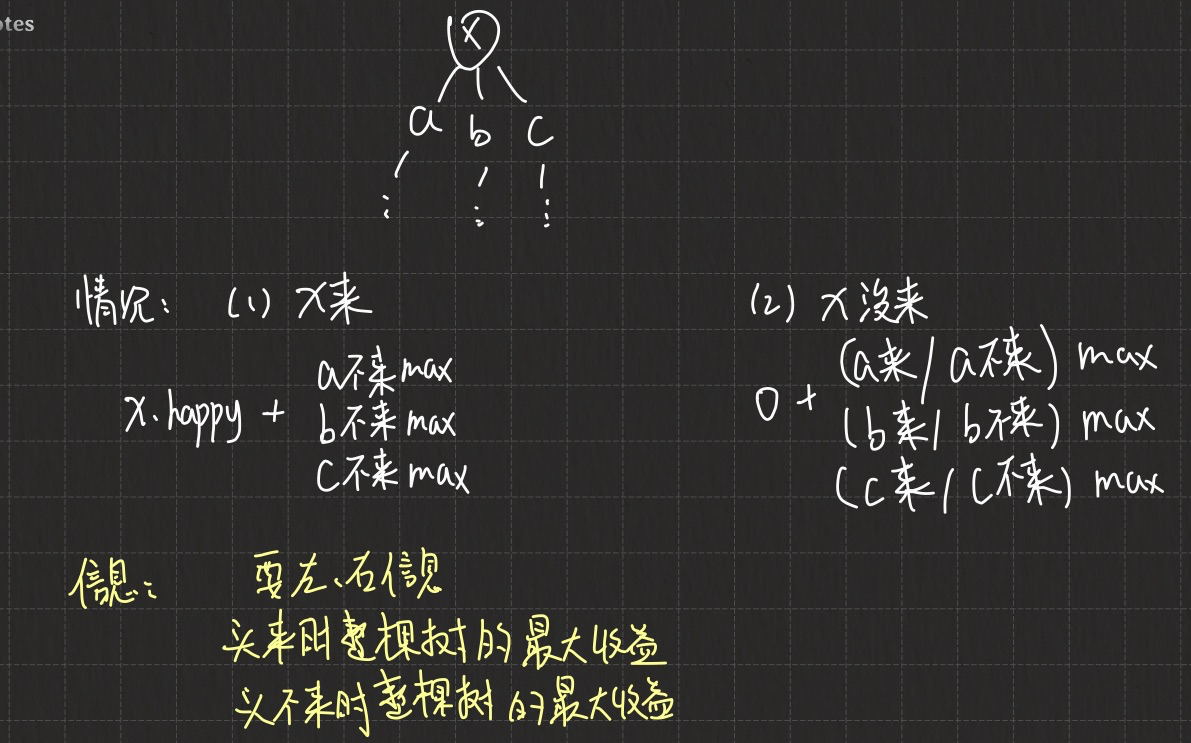 otes
x
a b c
情况: (1) x来
(2) x没来
a不来 max
x.happy + b不来 max
c不来 max
(a来/a不来) max
0 + (b来/b不来) max
(c来/c不来) max
信息: 要左、右信息
头来时整棵树的最大收益
头不来时整棵树的最大收益